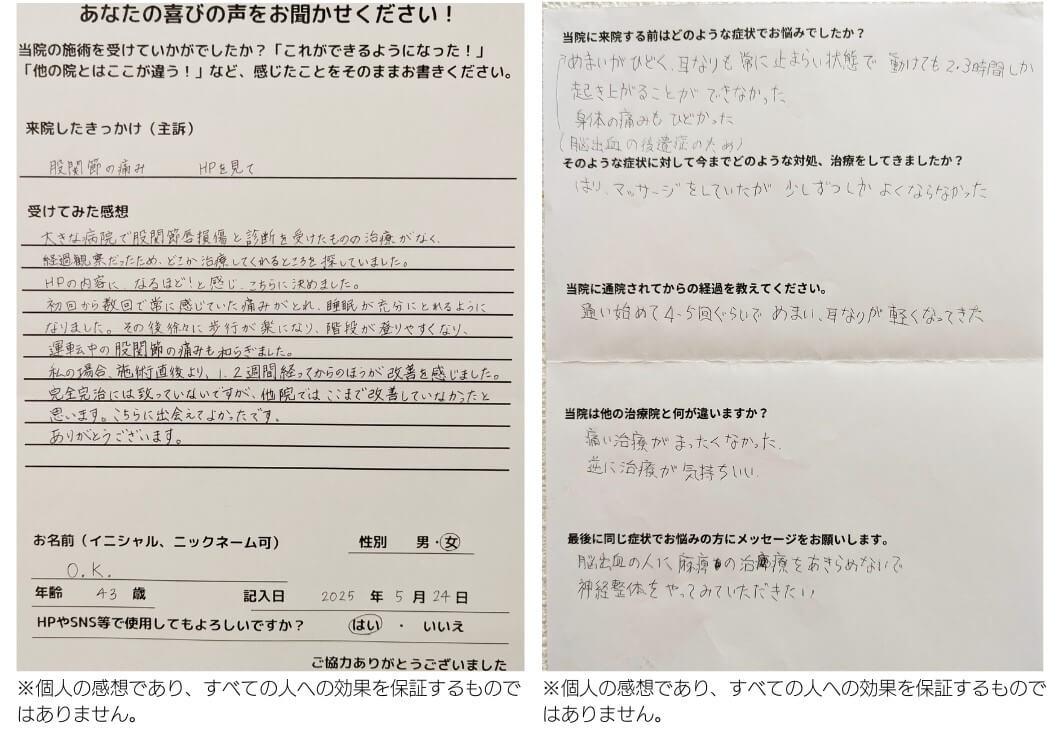 あなたの喜びの声をお聞かせください！
当院の施術を受けていかがでしたか？「これができるようになった！」
「他の院とはここが違う！」など、感じたことをそのままお書きください。
来院したきっかけ（主訴）
股関節の痛み　HPを見て
受けてみた感想
大きな病院で股関節唇損傷と診断を受けたものの治療がなく、
経過観察だったため、どこか治療してくれるところを探していました。
HPの内容に、なるほど！と感じ、こちらに決めました。
初回から数回で常に感じていた痛みがとれ、睡眠が充分にとれるように
なりました。その後徐々に歩行が楽になり、階段が登りやすくなり、
運転中の股関節の痛みも和らぎました。
私の場合、施術直後より、1.2週間経ってからのほうが改善を感じました。
完全完治には致っていないですが、他院ではここまで改善していなかったと
思います。こちらに出会えてよかったです。
ありがとうございます。
お名前（イニシャル、ニックネーム可）　性別　男・女
O.K.
年齢　43　歳　記入日　2025　年　5　月　24　日
HPやSNS等で使用してもよろしいですか？　はい・いいえ
ご協力ありがとうございました
※個人の感想であり、すべての人への効果を保証するもので
はありません。
当院に来院する前はどのような症状でお悩みでしたか？
めまいがひどく、耳なりも常に止まらい状態で動けても2.3時間しか
起き上がることができなかった
身体の痛みもひどかった
（脳出血の後遺症のため）
そのような症状に対して今までどのような対処、治療をしてきましたか？
はり、マッサージをしていたが少しずつしかよくならなかった
当院に通院されてからの経過を教えてください。
通い始めて4-5回ぐらいでめまい、耳なりが軽くなってきた
当院は他の治療院と何が違いますか？
痛い治療がまったくなかった、
逆に治療が気持ちいい.
最後に同じ症状でお悩みの方にメッセージをお願いします。
脳出血の人に麻痺の治療をあきらめないで
神経整体をやってみていただきたい
※個人の感想であり、すべての人への効果を保証するもので
はありません。